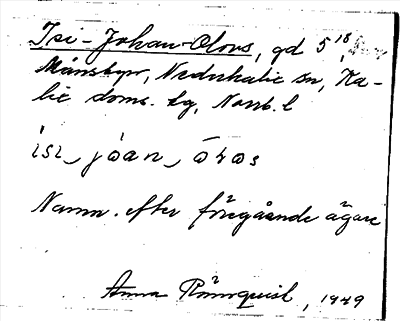 Isi-Johan-Olovs, gd 5¹⁸,
Månsbyn, Nederkalix sn, Ka-
lix doms. tg, Norrb. l
isi‿jòan‿
Namn efter föregående ägare
Anna Rönnquist, 1949